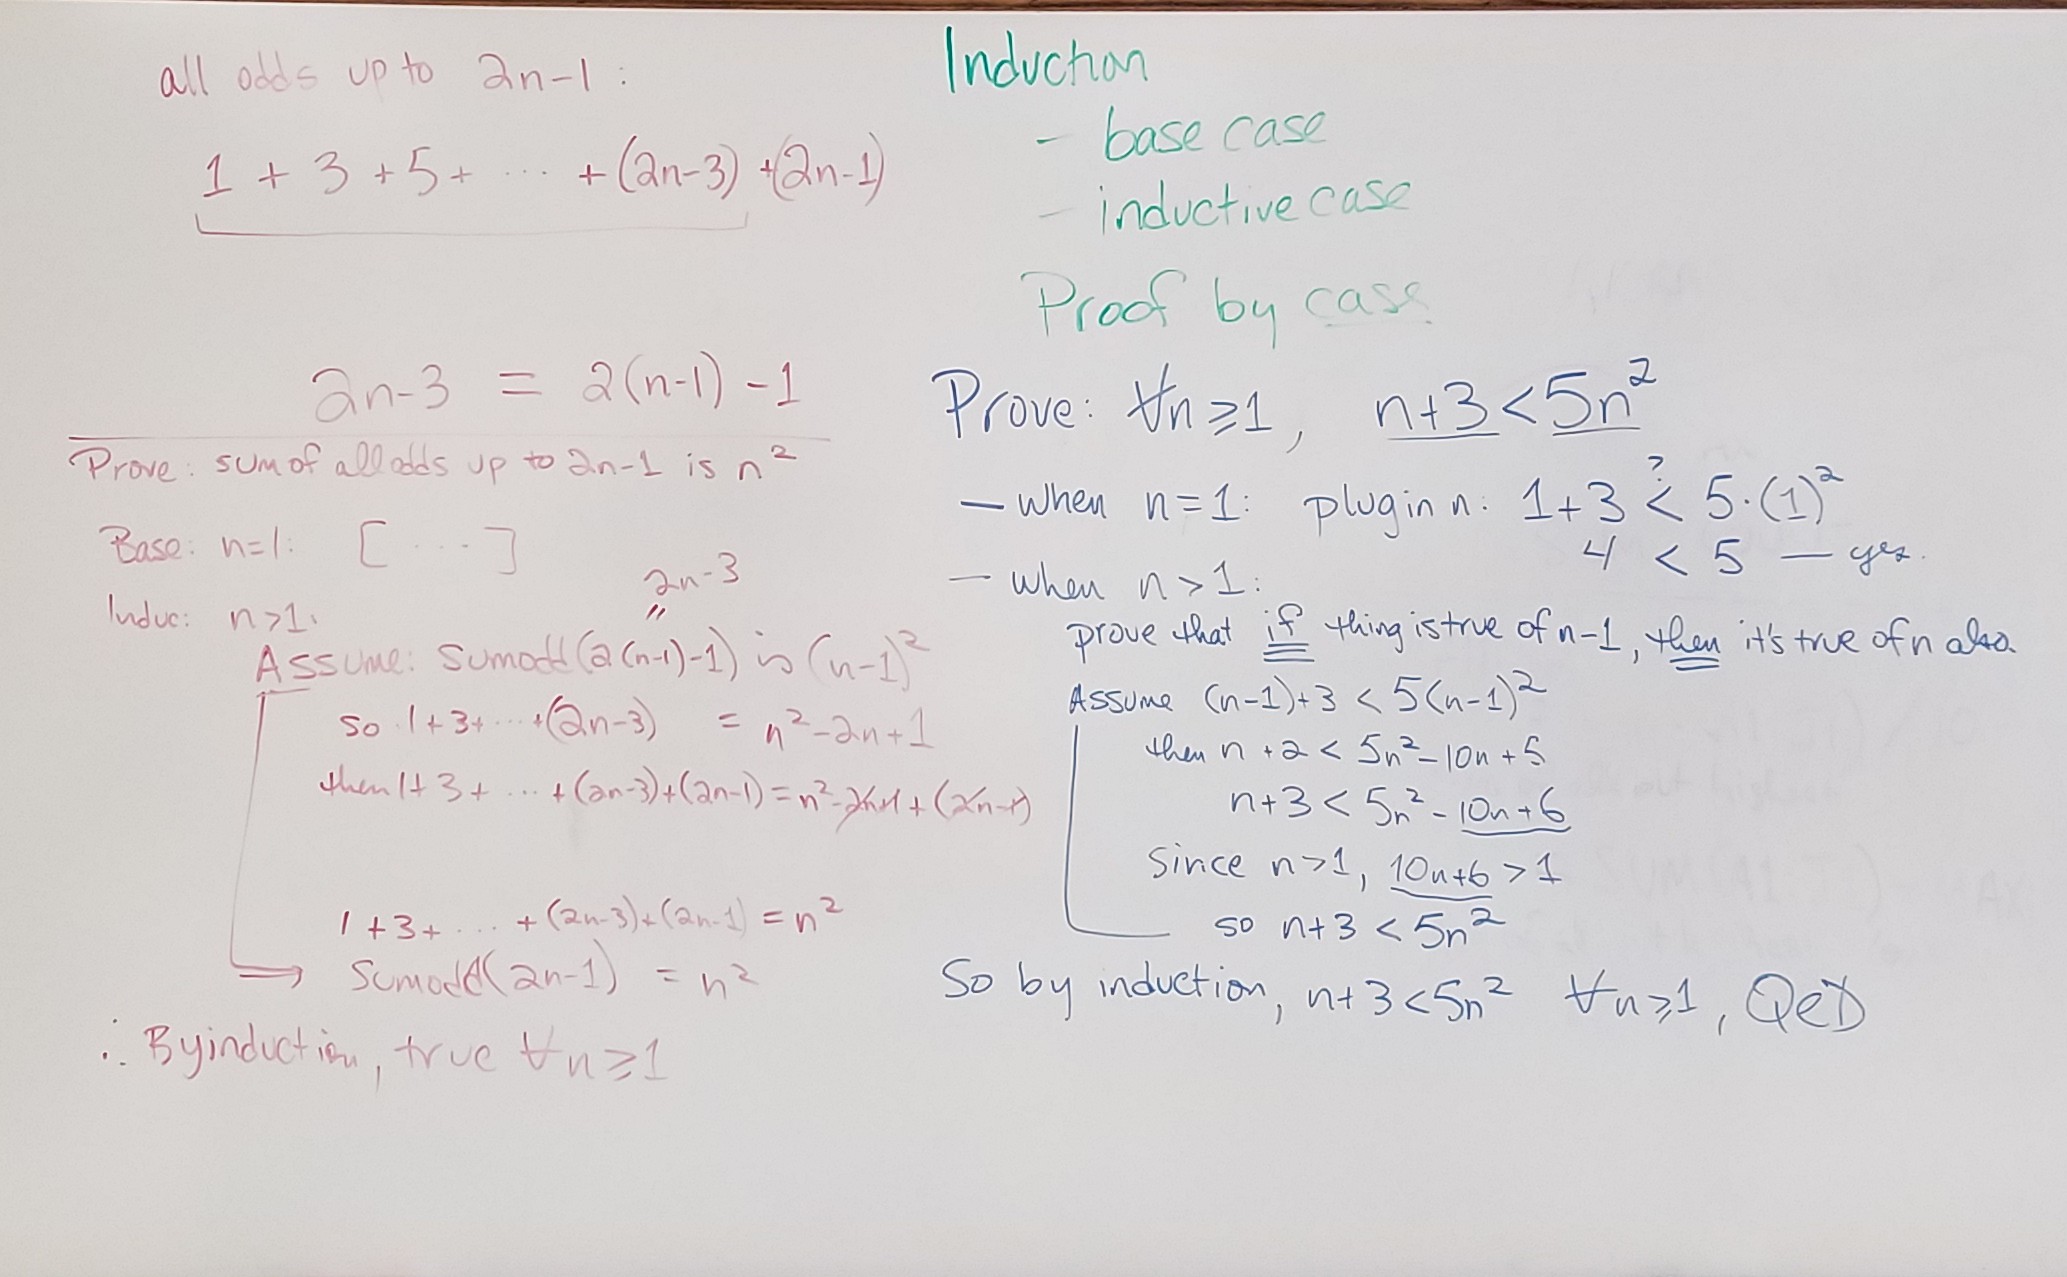 all odds up to 2n-1:
1 + 3 + 5 + ... + (2n-3) + (2n-1)
2n-3 = 2(n-1) - 1
Prove: sum of all odds up to 2n-1 is n²
Base: n=1: [ ... ]
2n-3
"
Induc: n>1.
Assume: Sumodd(2(n-1)-1) is (n-1)²
so 1+3+ ... +(2n-3) = n²-2n+1
then 1+3+ ... +(2n-3)+(2n-1) = n²-2n+1+(2n-1)
1+3+ ... +(2n-3)+(2n-1) = n²
→ Sumodd(2n-1) = n²
∴ By induction, true ∀n≥1
Induction
- base case
- inductive case
Proof by case
Prove: ∀n≥1, n+3<5n²
— When n=1: plug in n: 1+3 <? 5·(1)²
4 < 5 — yes.
— when n>1:
prove that if thing is true of n-1, then it's true of n also.
Assume (n-1)+3 < 5(n-1)²
then n+2 < 5n²-10n+5
n+3 < 5n²-10n+6
Since n>1, 10n+6 > 1
so n+3 < 5n²
So by induction, n+3<5n² ∀n≥1, QeD